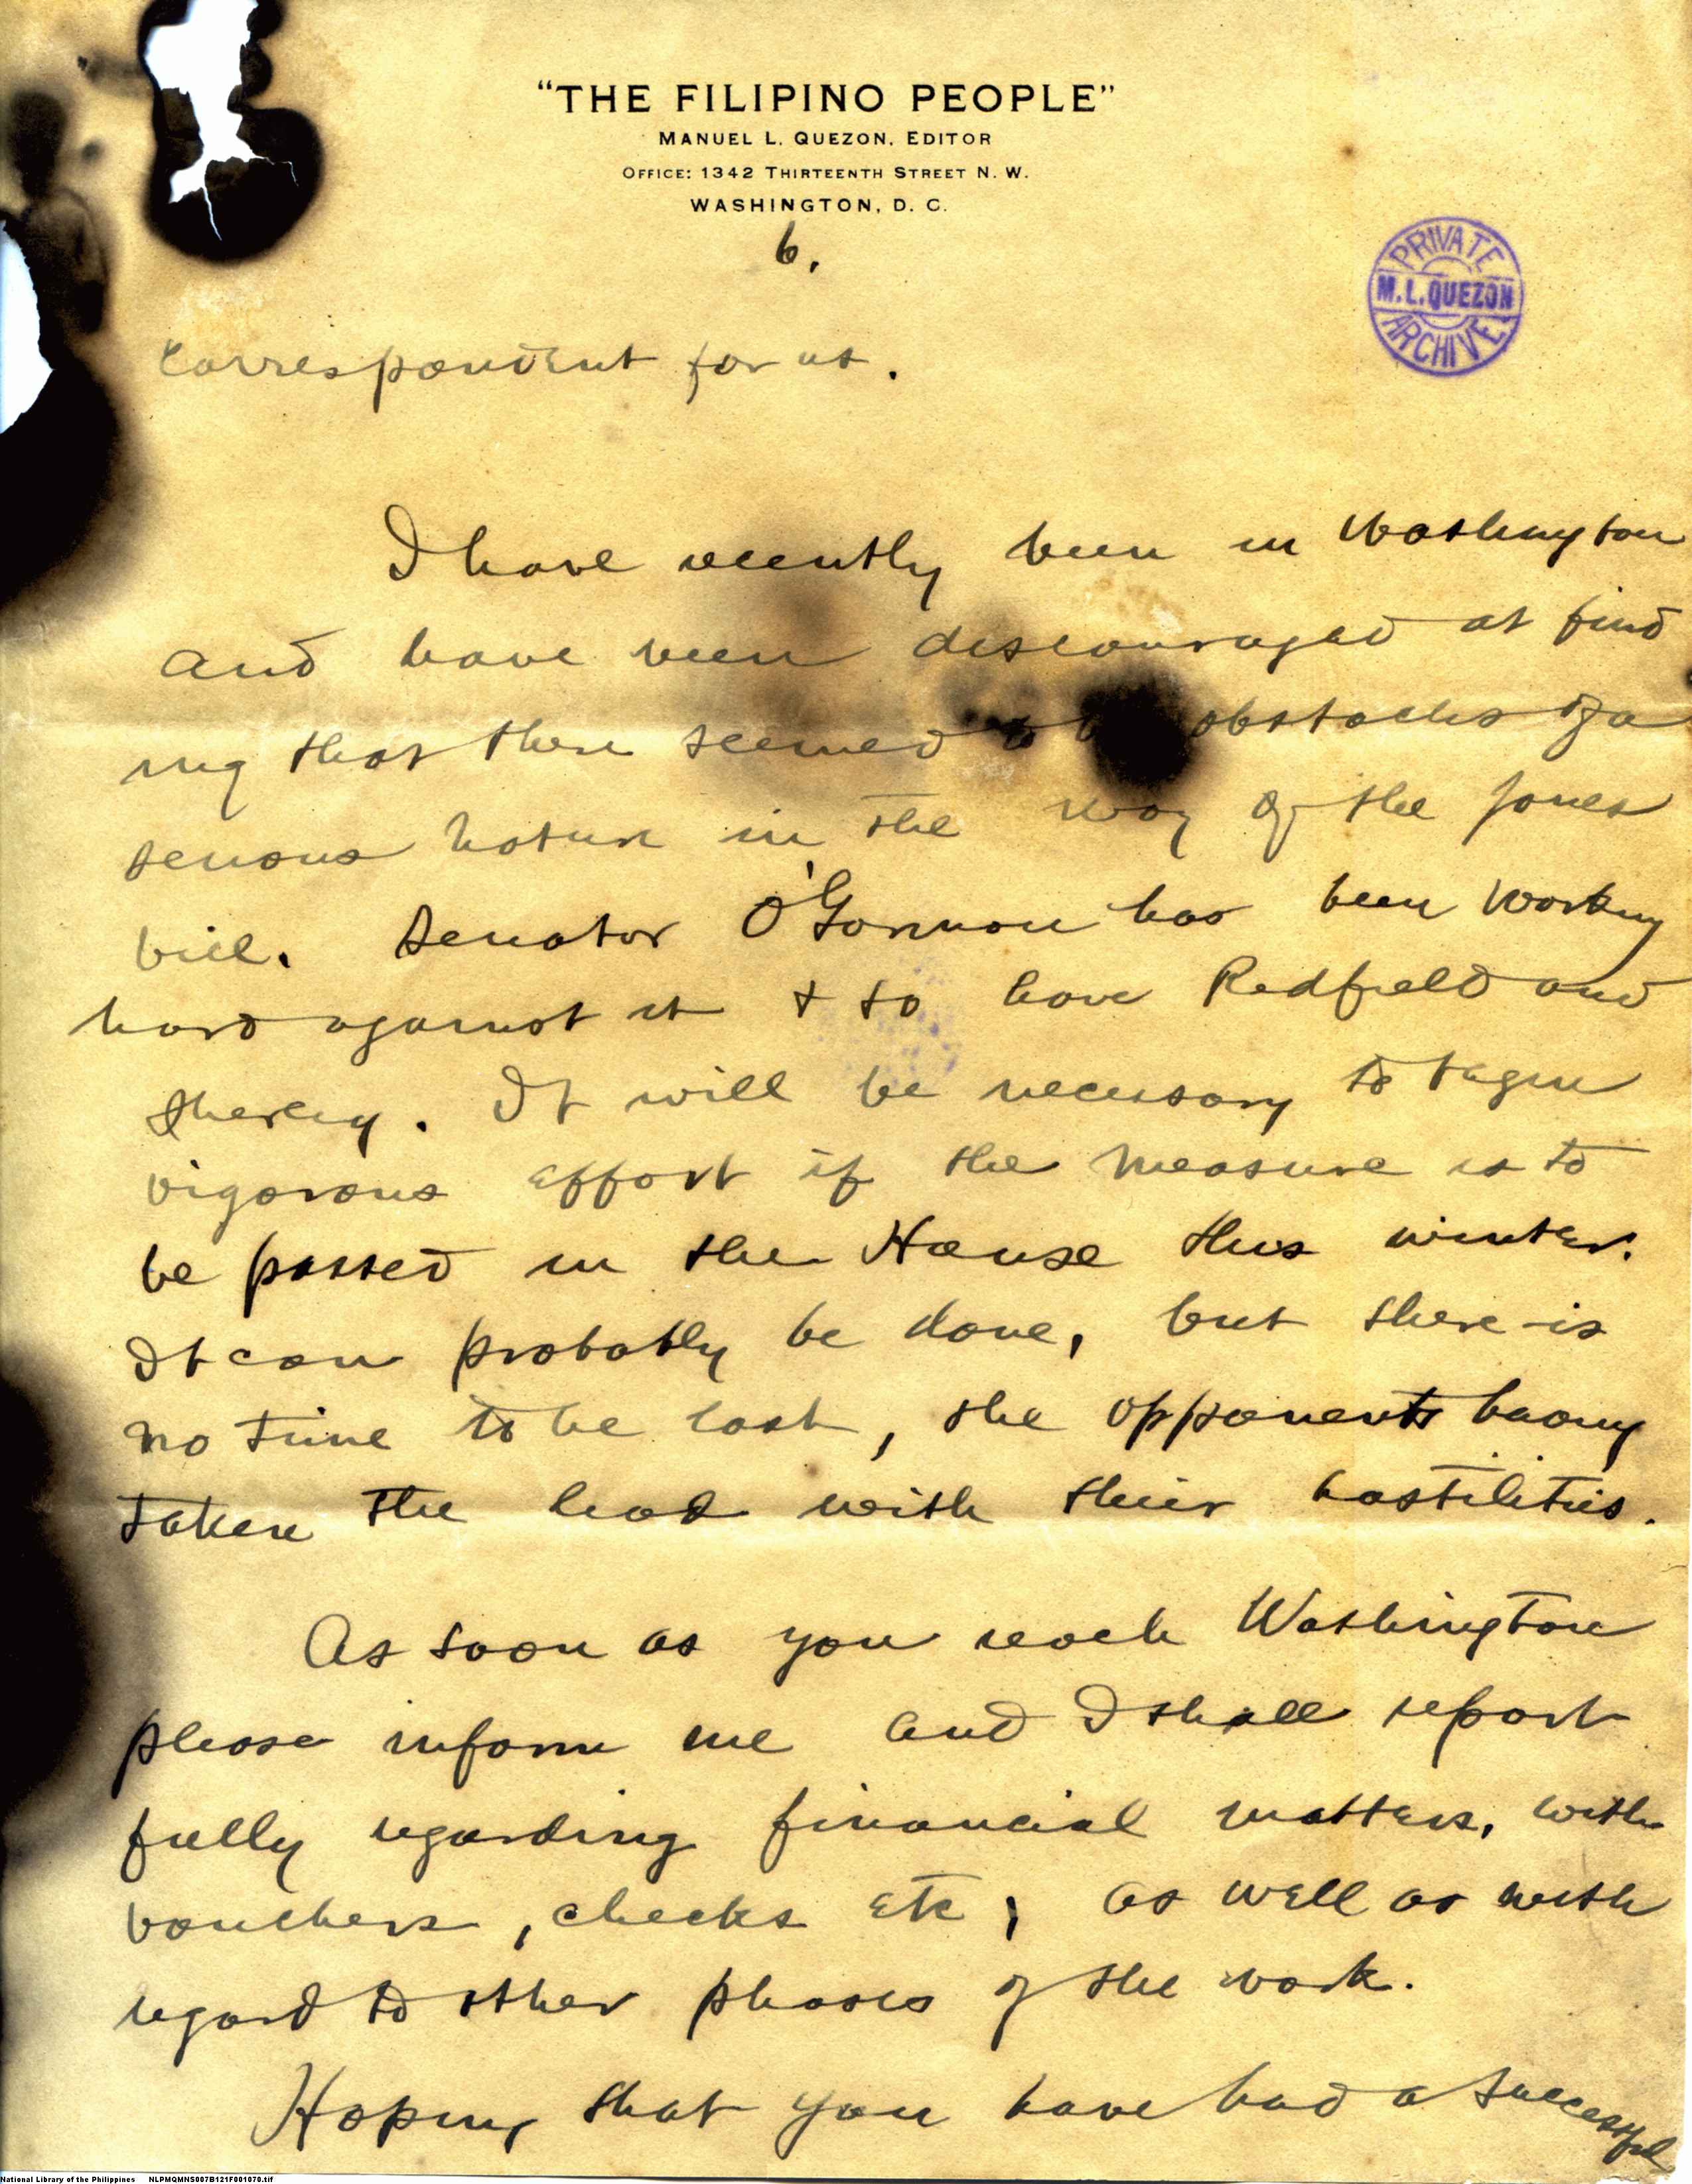 "THE FILIPINO PEOPLE"
MANUEL L. QUEZON, EDITOR
OFFICE: 1342 THIRTEENTH STREET N. W.
WASHINGTON, D. C.
6.
PRIVATE
M.L.QUEZON
ARCHIVE
Correspondent for us.
I have recently been in Washington
and have been discouraged at find
ing that there seemed to b obstacles of a
serious nature in the way of the Jones
bill. Senator O'Gorman has been working
hard against it & so have Redfield and
Sherley. It will be necessary to begin
vigorous effort if the measure is to
be passed in the House this winter.
It can probably be done, but there is
no time to be lost, the opponents having
taken the lead with their hostilities.
As soon as you reach Washington
please inform me and I shall report
fully regarding financial matters, with
vouchers, checks etc; as well as with
regard to other phases of the work.
Hoping that you have had a successful
National Library of the Philippines NLPMQMNS007B121F001070.tif